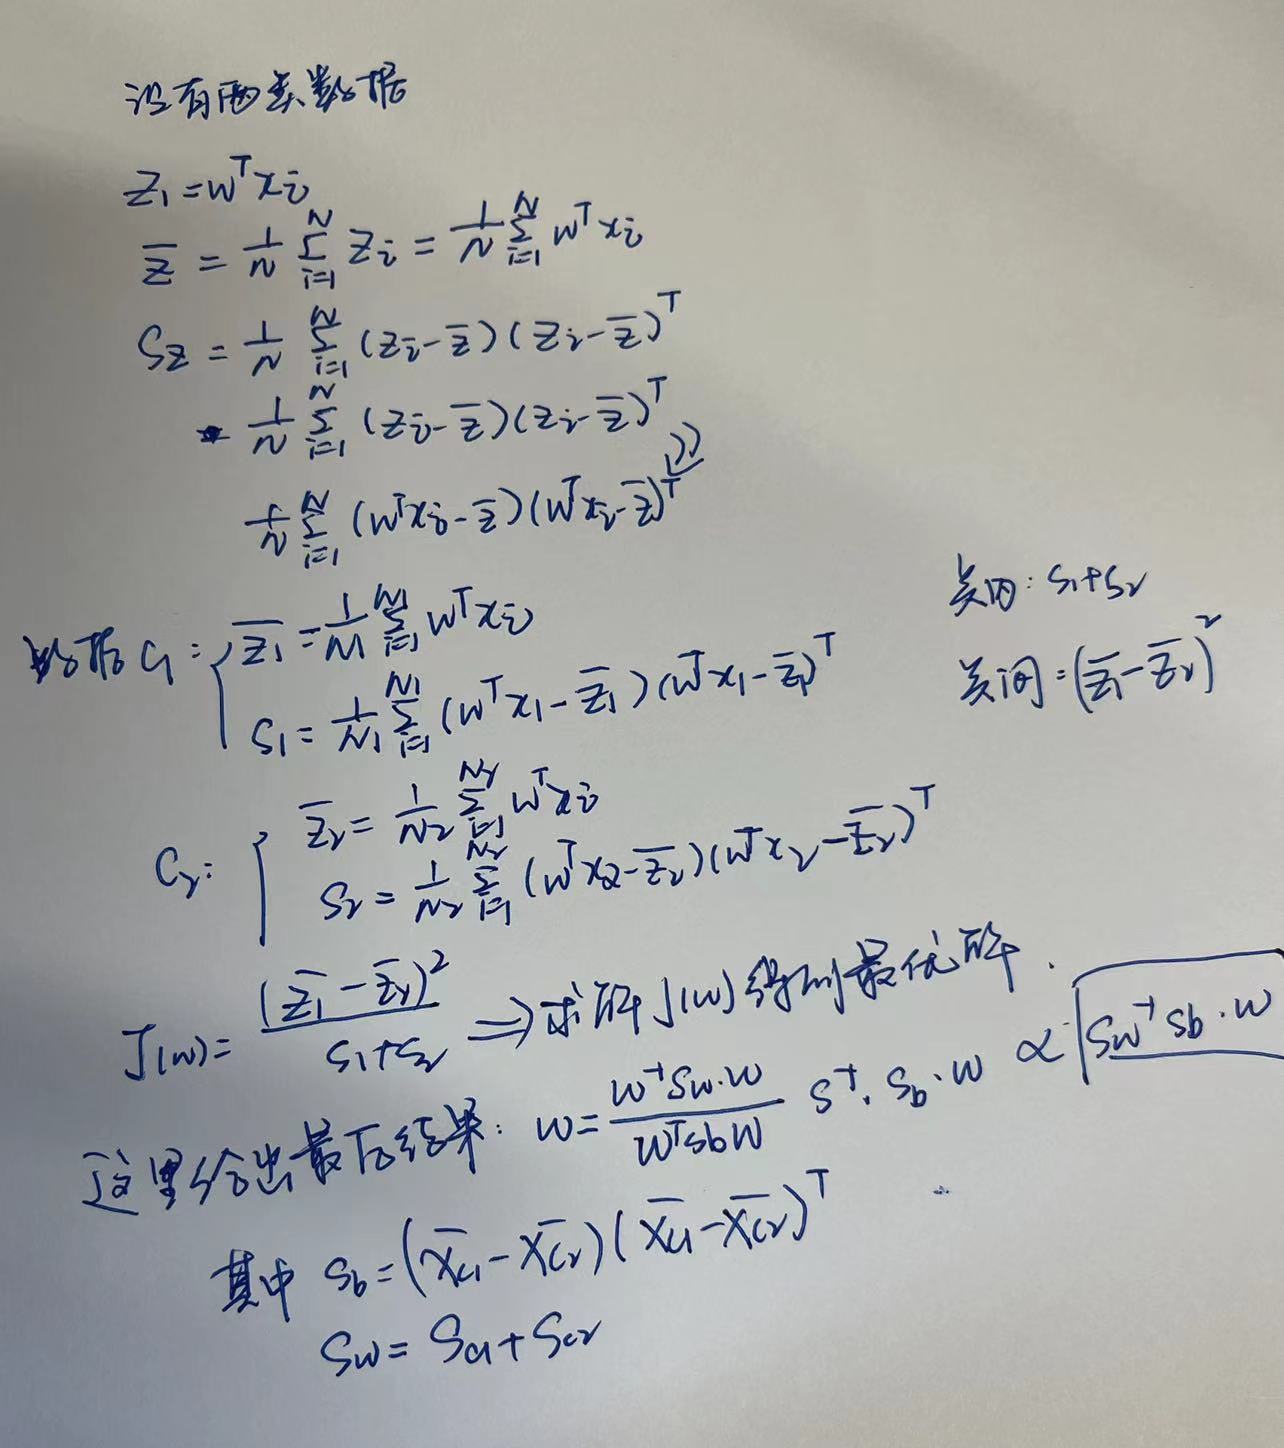 设有两类数据
Z₁ = wᵀxᵢ
z̄ = 1/N Σᵢ₌₁ᴺ Zᵢ = 1/N Σᵢ₌₁ᴺ wᵀxᵢ
Sz = 1/N Σᵢ₌₁ᴺ (zᵢ - z̄)(zᵢ - z̄)ᵀ
1/N Σᵢ₌₁ᴺ (zᵢ - z̄)(zᵢ - z̄)ᵀ
1/N Σᵢ₌₁ᴺ (wᵀxᵢ - z̄)(wᵀxᵢ - z̄)ᵀ
类内: S₁+S₂
数据C₁: { z̄₁ = 1/N₁ Σᵢ₌₁ᴺ¹ wᵀxᵢ
类间 = (z̄₁ - z̄₂)²
S₁ = 1/N₁ Σᵢ₌₁ᴺ¹ (wᵀx₁ - z̄₁)(wᵀx₁ - z̄₁)ᵀ
C₂: { z̄₂ = 1/N₂ Σᵢ₌₁ᴺ² wᵀxᵢ
S₂ = 1/N₂ Σᵢ₌₁ᴺ² (wᵀx₂ - z̄₂)(wᵀx₂ - z̄₂)ᵀ
J(w) = (z̄₁ - z̄₂)² / (S₁+S₂) ⇒ 求解J(w)得到最优解.
这里给出最后结果: w = (w⁻¹Sw·w)/(wᵀSbw) S⁻¹·Sb·w ∝ Sw⁻¹Sb·w
其中 Sb = (X̄c₁ - X̄c₂)(X̄c₁ - X̄c₂)ᵀ
Sw = Sc₁ + Sc₂